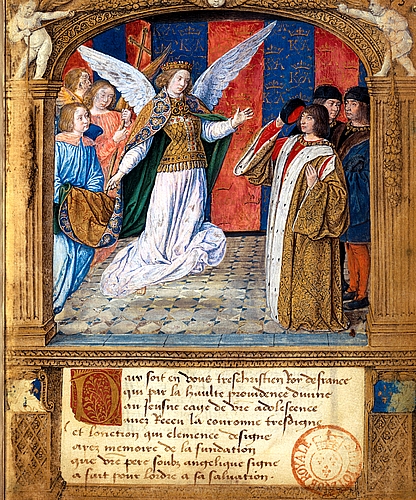 KA KA KA
KA KA
Paix soit en vous treschristien Roy de france
qui par la haulte providence divine
jeusne eage de vre adolescence
avez Receu la couronne tresdigne
et lonction qui clemence designe
ayez memoire de la fundation
que vre pere soubz angelique signe
a fait pour lordre a sa salvation.